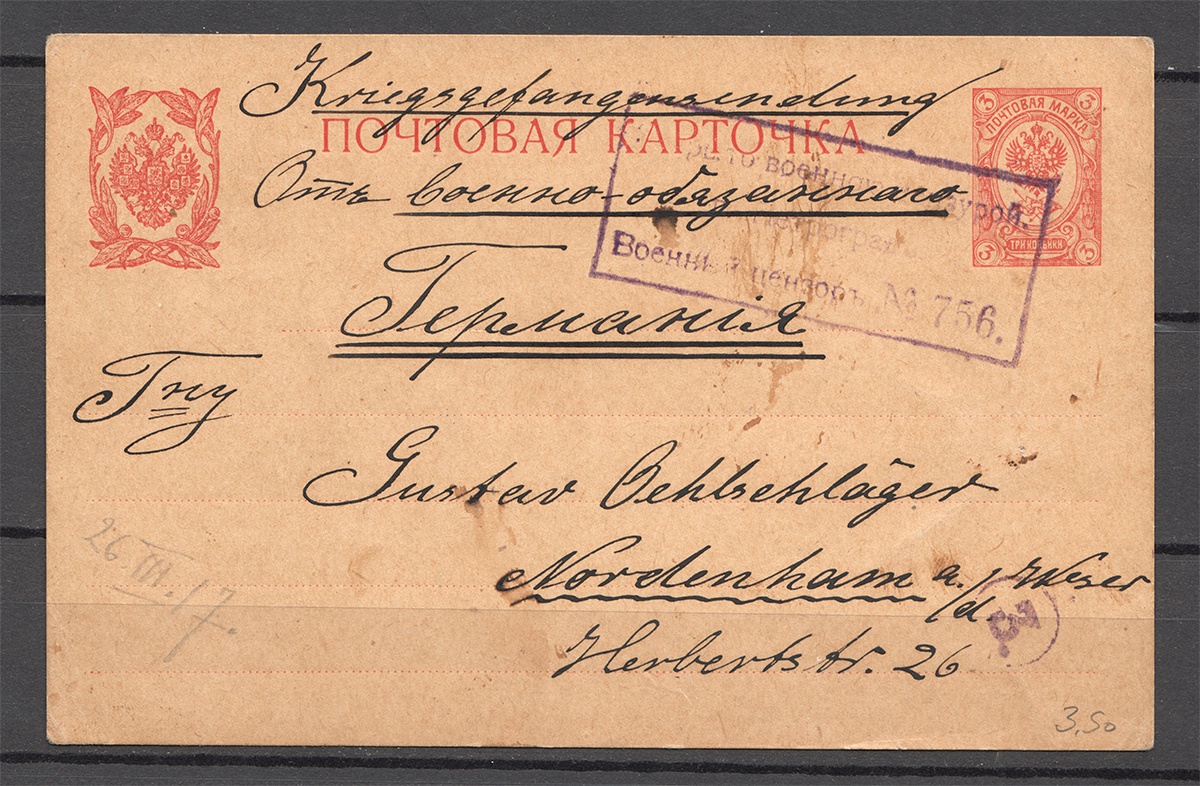 Kriegsgefangensendung
ПОЧТОВАЯ КАРТОЧКА
3 3
ПОЧТОВАЯ МАРКА
3 3
ТРИ КОПѢЙКИ
Отъ военно-обязаннаго
военной
Военный цензоръ № 756.
Германія
Гну
Gustav Oehlschläger
Nordenham a./d. Weser
Herbertstr. 26
26 III. 17.
3,50